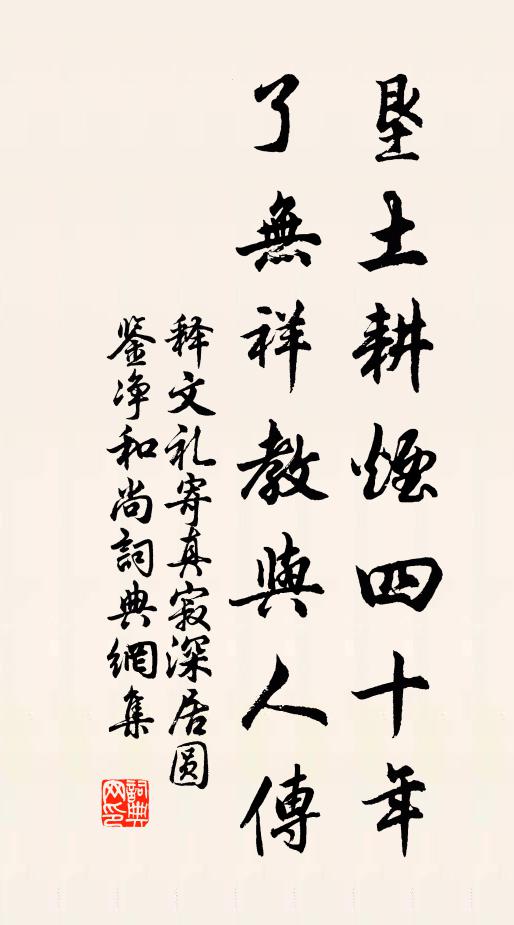 墾土耕煙四十年
了無祥教與人傳
释文礼寄真寂深居圆
鉴净和尚詞典網集
詞典网印